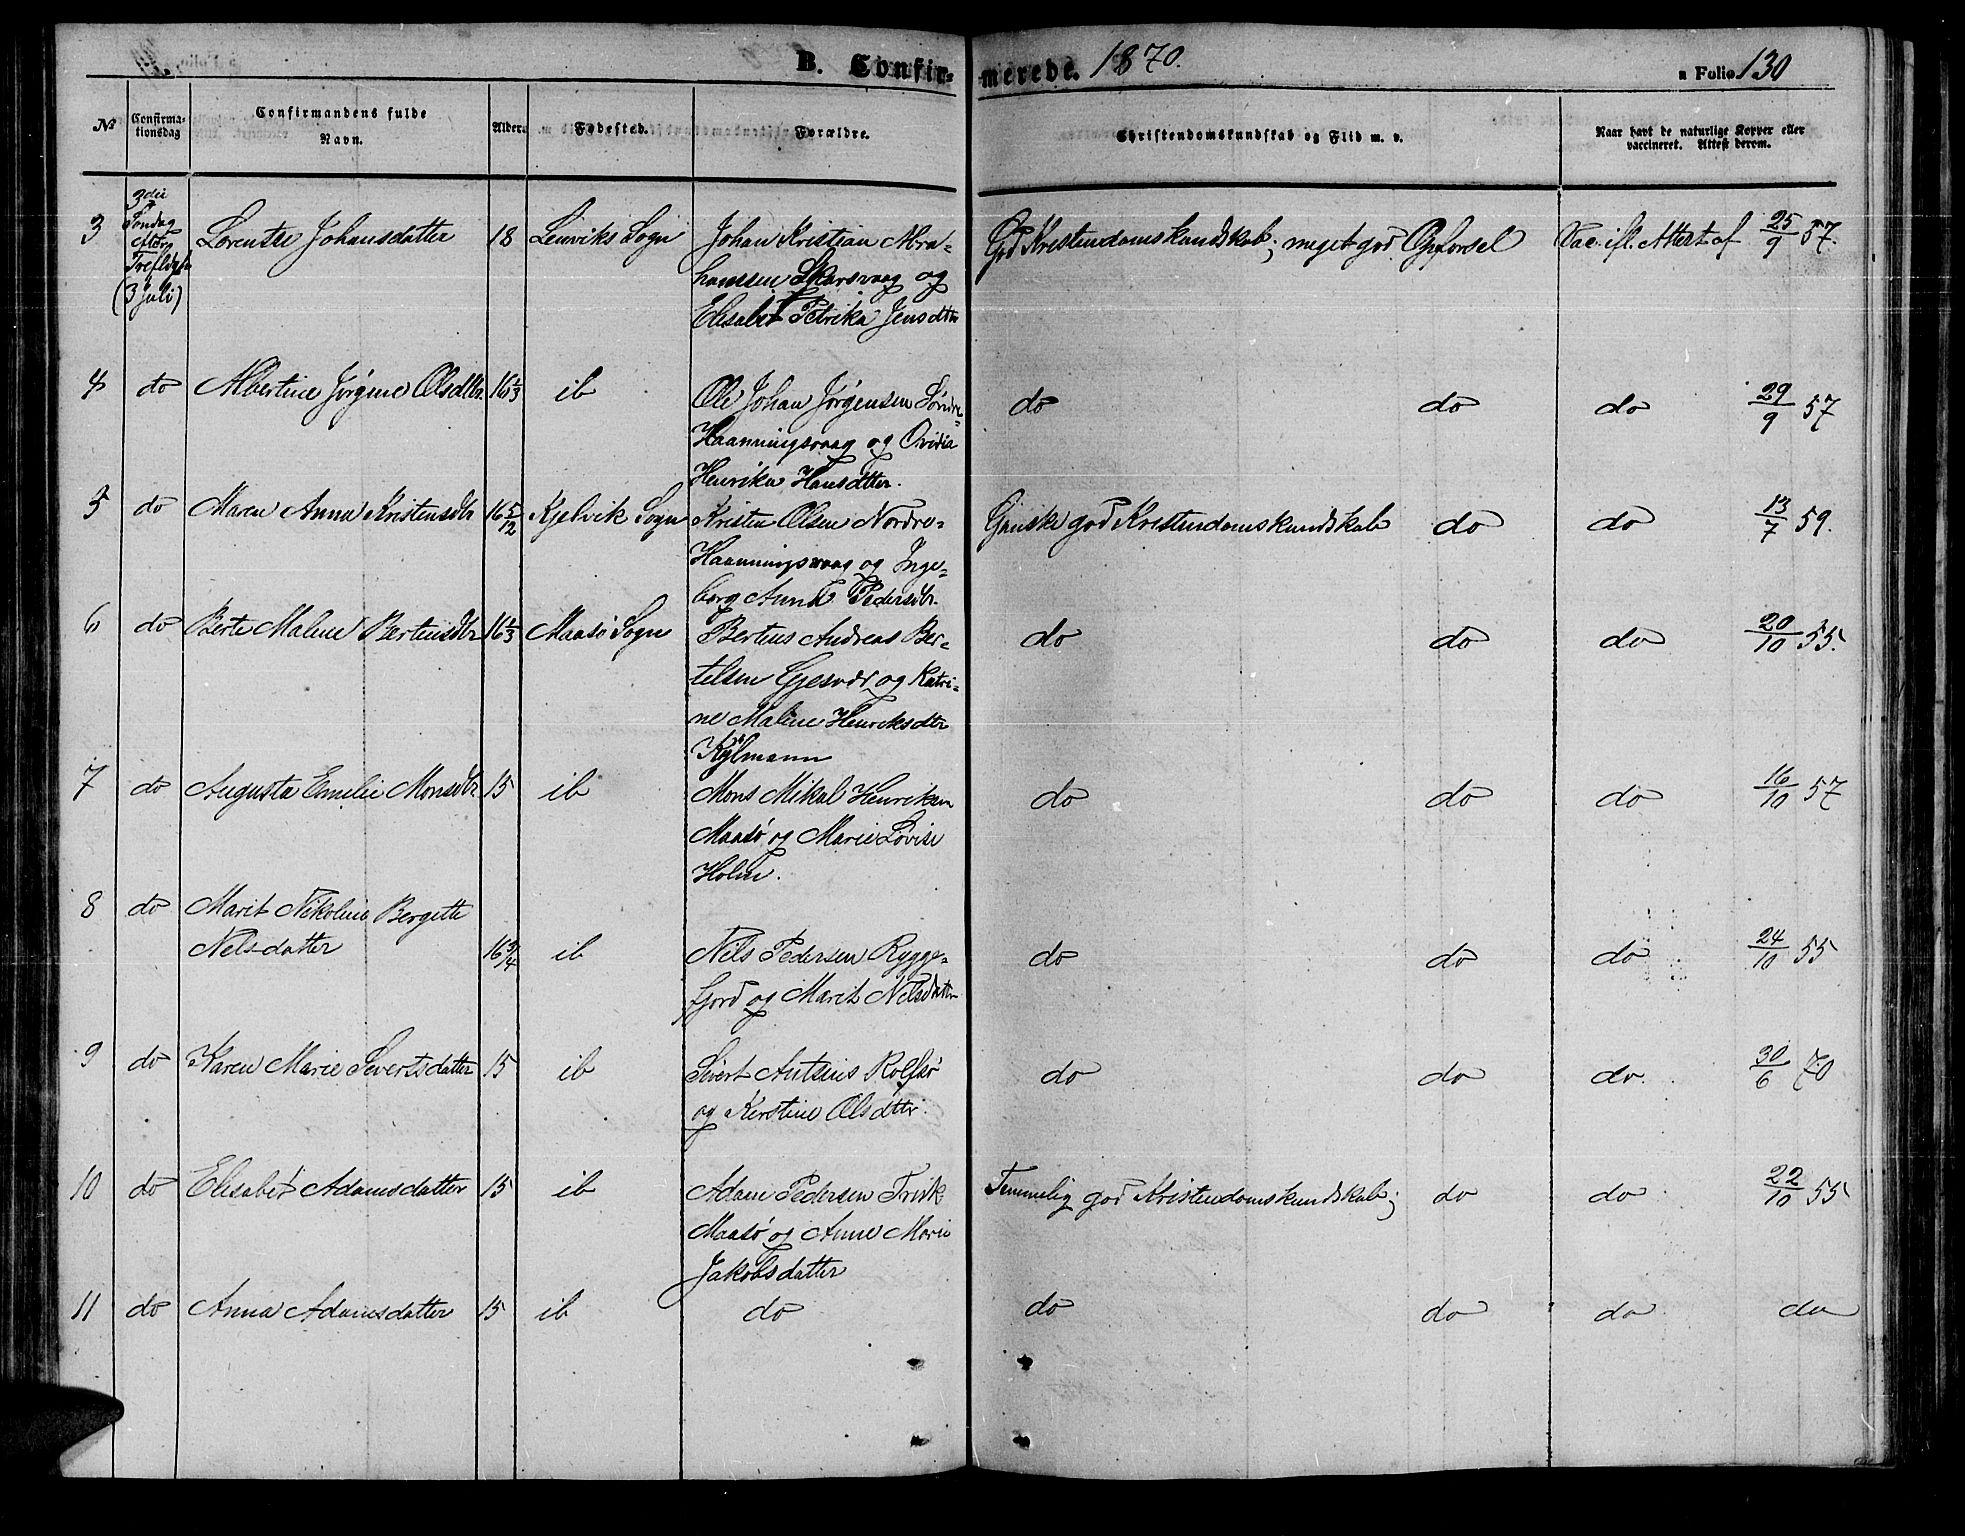 B. Confir-merede. 1870. a Folio 130
№ Confirma-tionsdag Confirmandens fulde Navn. Alder. Fødested. Forældre. Christendomskundskab og Flid m. v. Naar havt de naturlige Kopper eller vaccineret. Attest derom.
3 3die Søndag efter Trefldgh (3 juli) Lorentze Johansdatter 18 Lenviks Sogn Johan Kristian Abra- God Kristendomskundskab; meget god Opførsel Vac. ifl. Attest af 25/9 57.
hamssen Skarsvaag og
Elisabet Petrika Jensdttr
4 do Albertine Jørgine Olsdttr. 16 1/3 ib Ole Johan Jørgensen Søndre- do do do 29/9 57
Haanningsvaag og Ovidia
Henrika Hansdtter.
5 do Maren Anna Kristensdtr 16 5/12 Kjelvik Sogn Kristen Olsen Nordre- Ganske god Kristendomskundskab do do 13/7 59.
Haanningsvaag og Inge-
borg Anna Pedersdtr.
6 do Berte Malene Bertinsdtr 16 1/3 Maasø Sogn Bertius Andreas Ber- do do do 20/10 55.
telsen Gjesvær og Katri-
ne Maline Henriksdttr
Kylmann
7 do Augusta Emilie Monsdtr 15 ib Mons Mikal Henriksen do do do 16/10 57
Maasø og Marie Lovise
Holm.
8 do Marit Nikoline Bergitte
Nelsdatter 16 3/4 ib Nils Pedersen Rygge- do do do 24/10 55
fjord og Marit Nelsdatter
9 do Karen Marie Sivertsdatter 15 ib Sivert Antsius Rolfsø do do do. 30/6 70
og Kirstine Olsdttr.
10 do Elisabet Adamsdatter 15 ib Adam Pedersen Trvik Temmelig god Kristendomskundskab; do do 22/10 55
Maasø og Anne Marie
Jakobsdatter
11 do Anna Adamsdatter 15 ib do do do do do